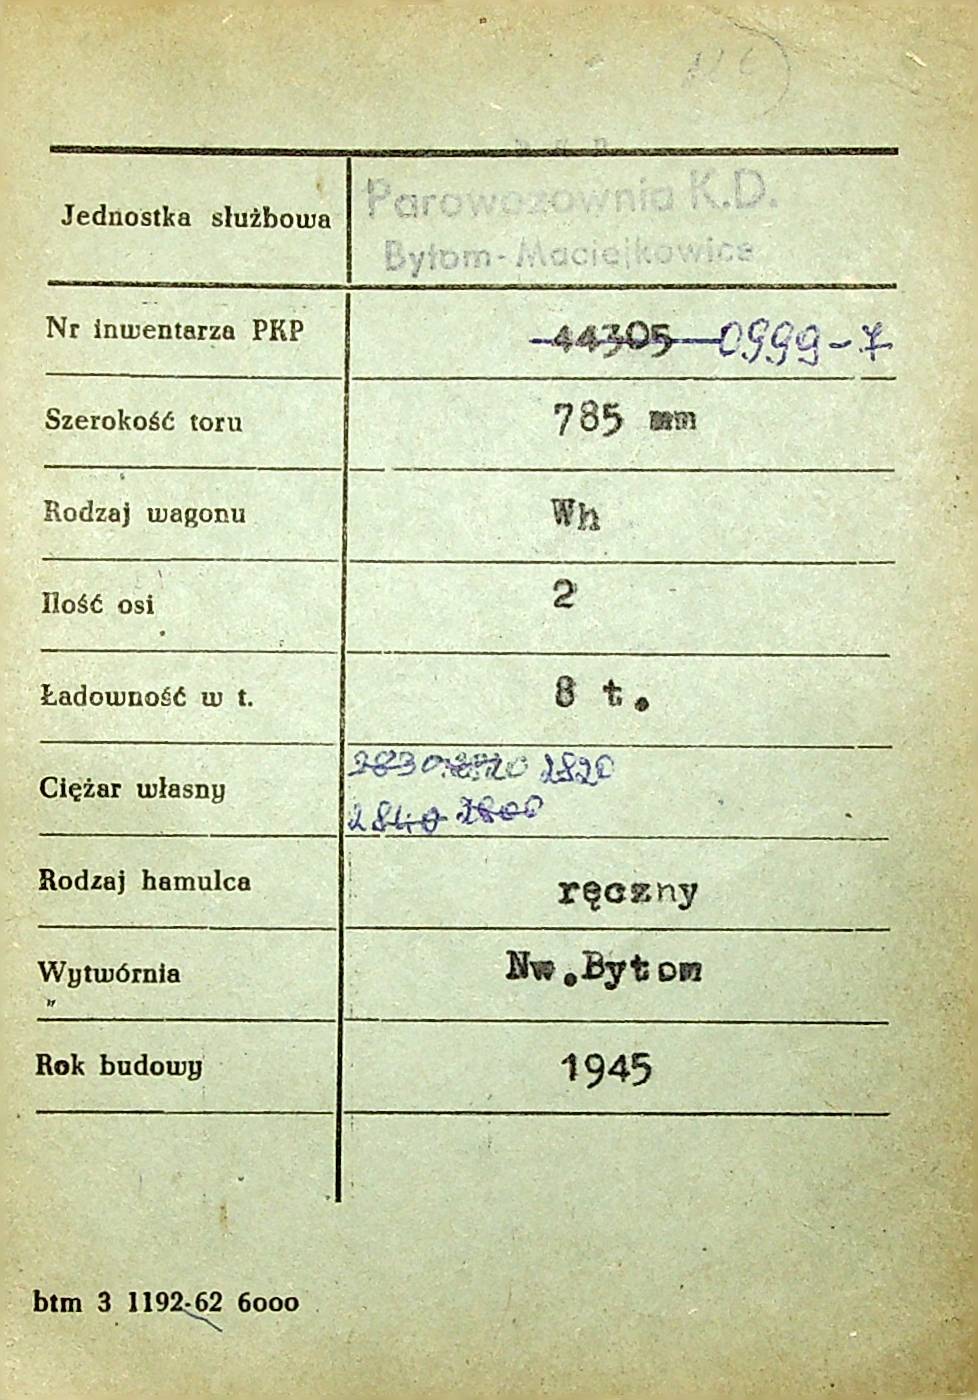 Jednostka służbowa
Parowozownia K.D.
Bytom-Maciejkowice
Nr inwentarza PKP 44305 0999-7
Szerokość toru 785 mm
Rodzaj wagonu Wh
Ilość osi 2
Ładowność w t. 8 t.
Ciężar własny 2830 2820
2840 2800
Rodzaj hamulca ręczny
Wytwórnia Nw.Bytom
Rok budowy 1945
btm 3 1192-62 6ooo